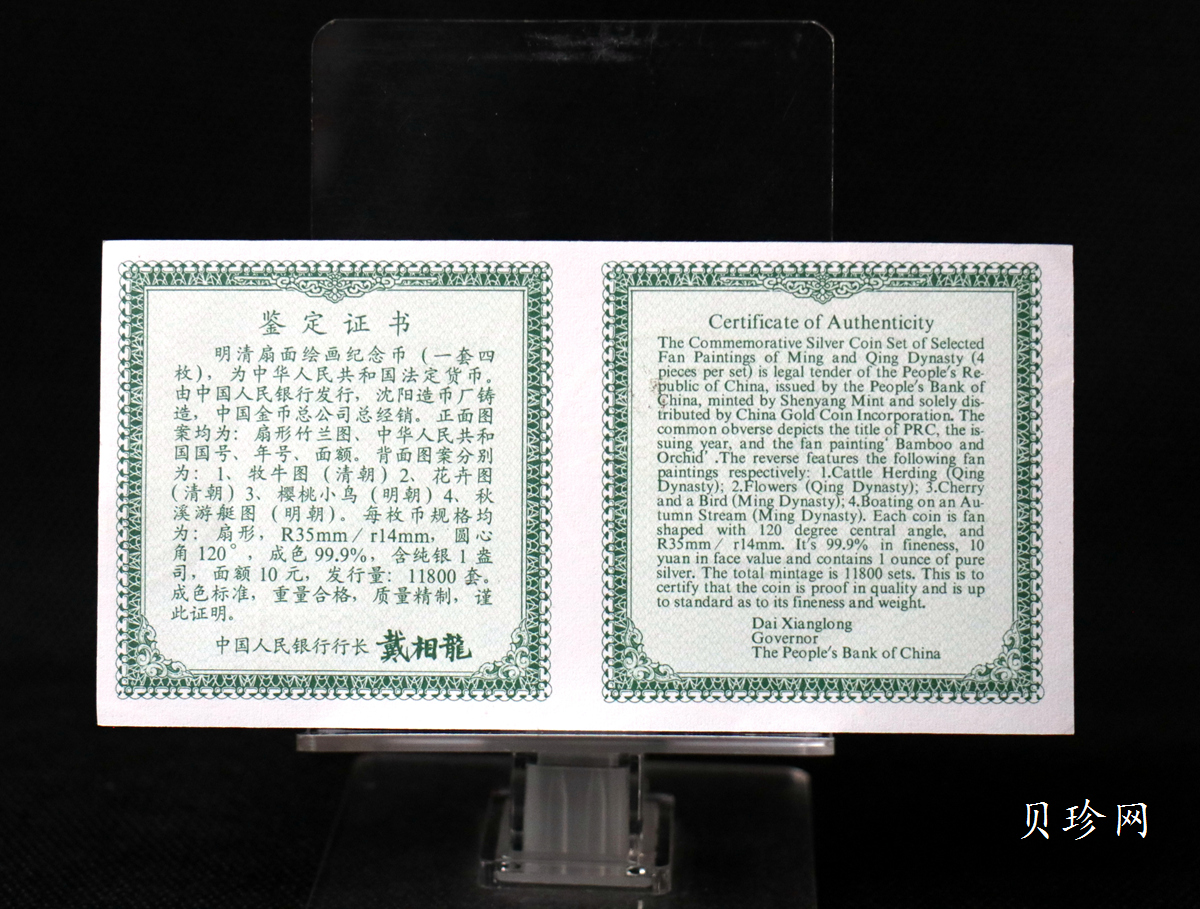 鉴定证书
明清扇面绘画纪念币（一套四
枚），为中华人民共和国法定货币。
由中国人民银行发行，沈阳造币厂铸
造，中国金币总公司总经销。正面图
案均为：扇形竹兰图、中华人民共和
国国号、年号、面额。背面图案分别
为：1、牧牛图（清朝）2、花卉图
（清朝）3、樱桃小鸟（明朝）4、秋
溪游艇图（明朝）。每枚币规格均
为：扇形，R35mm／r14mm，圆心
角120°，成色99.9%，含纯银1盎
司，面额10元，发行量：11800套。
成色标准，重量合格，质量精制，谨
此证明。
中国人民银行行长 戴相龍
Certificate of Authenticity
The Commemorative Silver Coin Set of Selected
Fan Paintings of Ming and Qing Dynasty (4
pieces per set) is legal tender of the People's Re-
public of China, issued by the People's Bank of
China, minted by Shenyang Mint and solely dis-
tributed by China Gold Coin Incorporation. The
common obverse depicts the title of PRC, the is-
suing year, and the fan painting' Bamboo and
Orchid' .The reverse features the following fan
paintings respectively: 1.Cattle Herding (Qing
Dynasty); 2.Flowers (Qing Dynasty); 3.Cherry
and a Bird (Ming Dynasty); 4.Boating on an Au-
tumn Stream (Ming Dynasty). Each coin is fan
shaped with 120 degree central angle, and
R35mm／r14mm. It's 99.9% in fineness, 10
yuan in face value and contains 1 ounce of pure
silver. The total mintage is 11800 sets. This is to
certify that the coin is proof in quality and is up
to standard as to its fineness and weight.
Dai Xianglong
Governor
The People's Bank of China
贝珍网